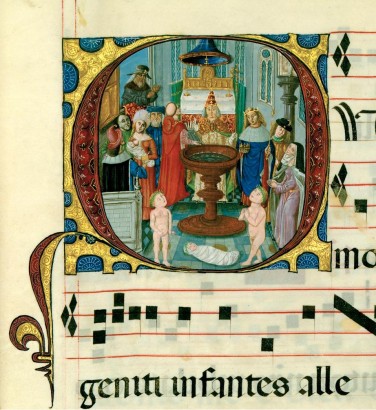 mo
geniti infantes alle